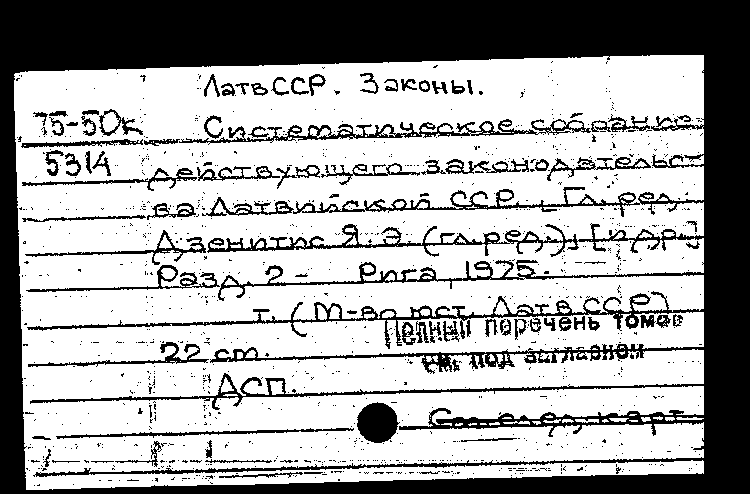 ЛатвССР. Законы.
75-50к Систематическое собрание
5314 действующего законодательст
ва Латвийской ССР. [Гл. ред.
Дзенитис Я.Э. (гл.ред.); [и др.]
Разд. 2 - Рига, 1975.
т. (М-во юст. Латв ССР)
Полный перечень томов
22 см.
см. под заглавием
ДСП.
См. след. карт.